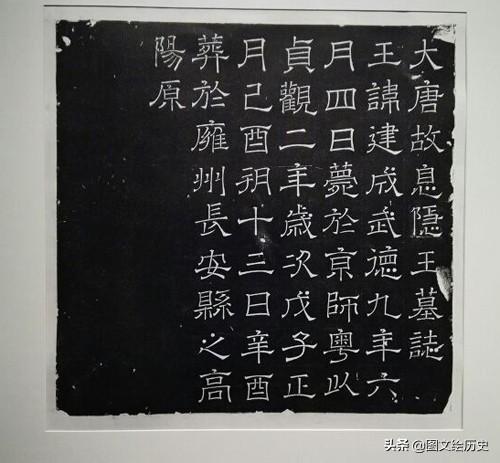 大唐故息隱王墓誌
王諱建成武德九年六
月四日薨於京師粵以
貞觀二年歲次戊子正
月己酉朔十三日辛酉
葬於雍州長安縣之高
陽原
头条@图文绘历史